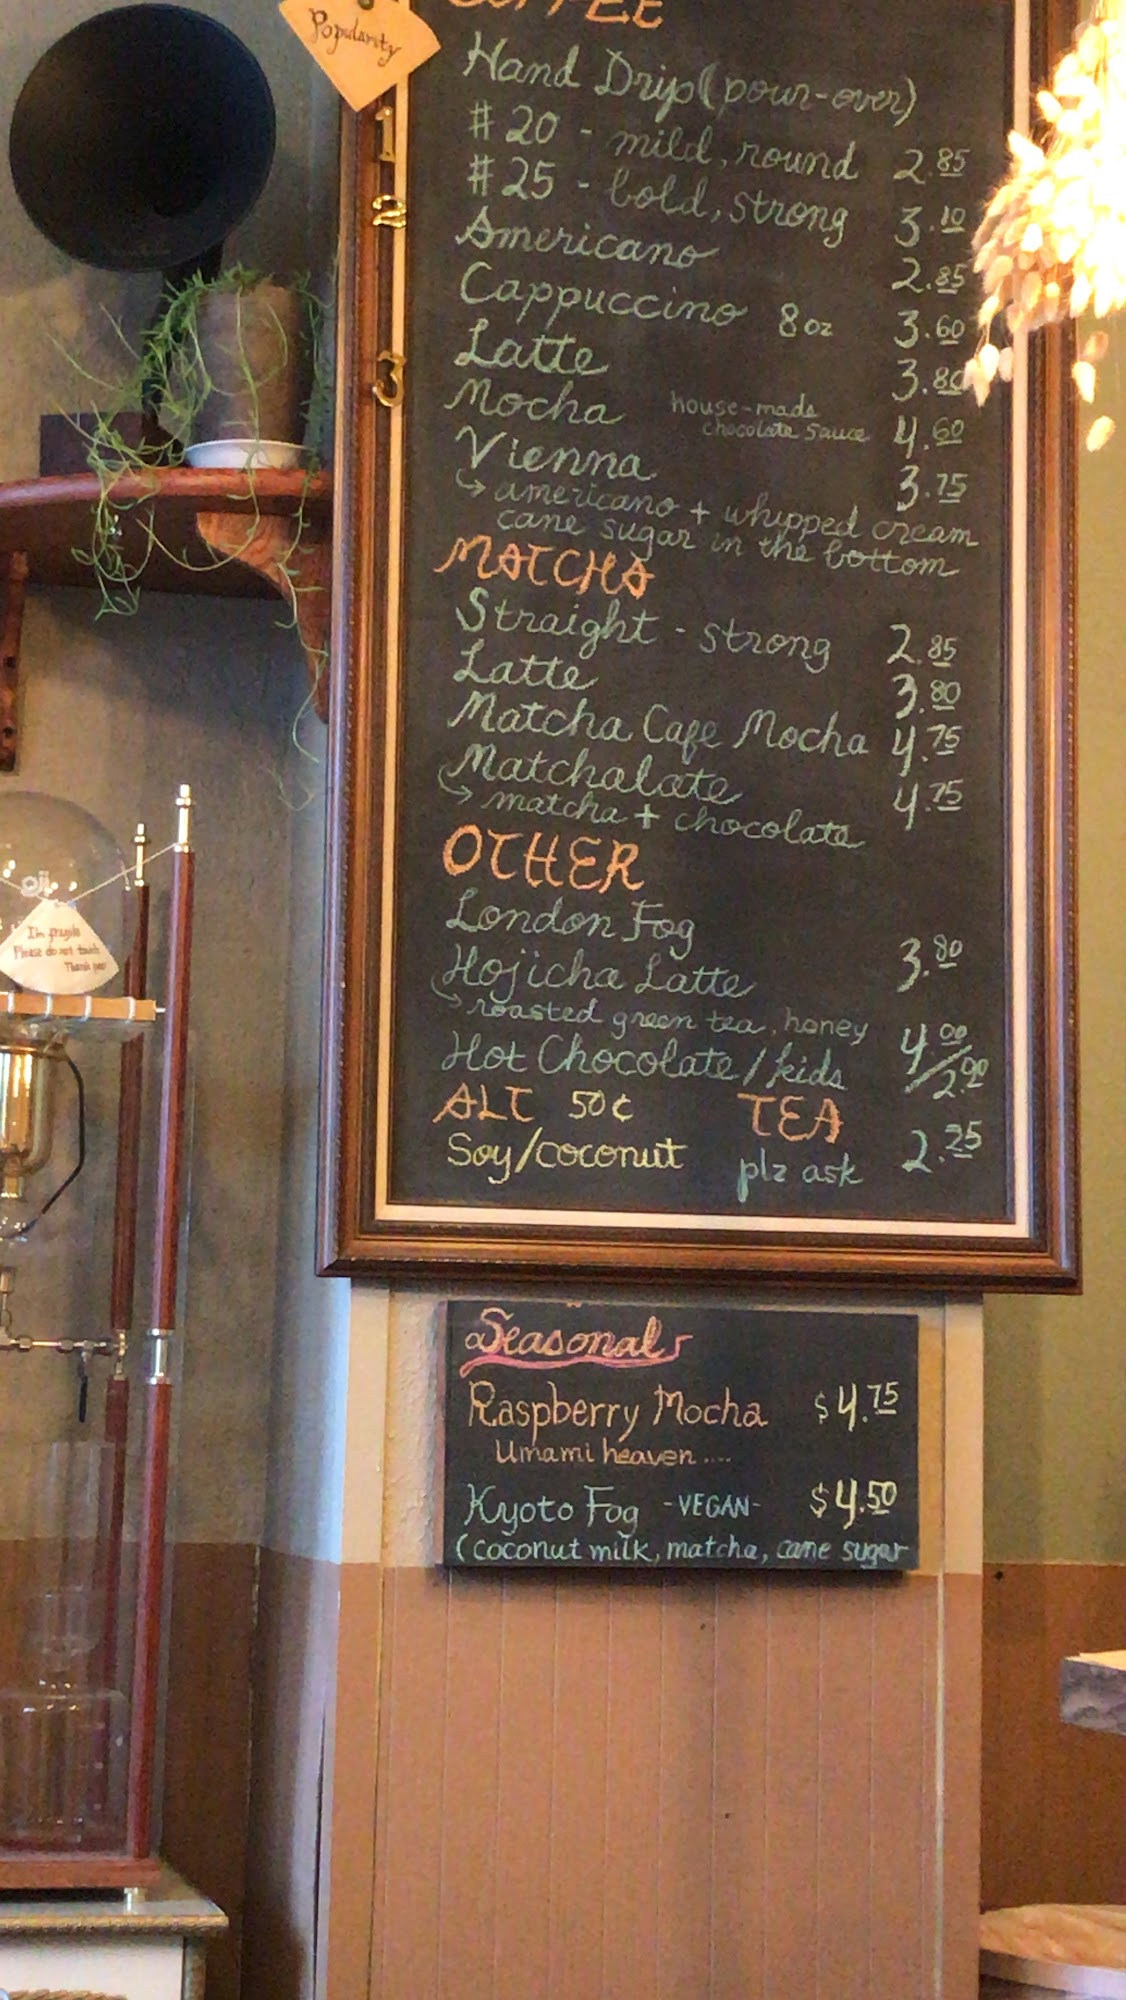 COFFEE
Popularity
Hand Drip (pour-over)
1 #20 - mild, round 2.85
2 #25 - bold, strong 3.10
Americano 2.85
Cappuccino 8oz 3.60
3 Latte 3.80
Mocha house-made chocolate sauce 4.60
Vienna 3.75
↳ americano + whipped cream
cane sugar in the bottom
MATCHA
Straight - strong 2.85
Latte 3.80
Matcha Cafe Mocha 4.75
Matchalate 4.75
↳ matcha + chocolate
OTHER
London Fog
Hojicha Latte 3.80
↳ roasted green tea, honey
Hot Chocolate / kids 4.00/2.00
ALT 50¢ TEA
Soy/coconut plz ask 2.25
I'm fragile
Please do not touch
Thank you
Seasonal
Raspberry Mocha $4.75
Umami heaven....
Kyoto Fog -VEGAN- $4.50
(coconut milk, matcha, cane sugar